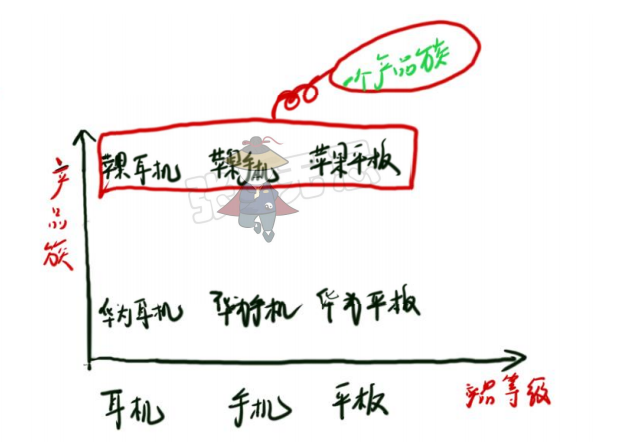 一个产品族
产品族
苹果耳机 苹果手机 苹果平板
华为耳机 华为手机 华为平板
耳机 手机 平板
产品等级